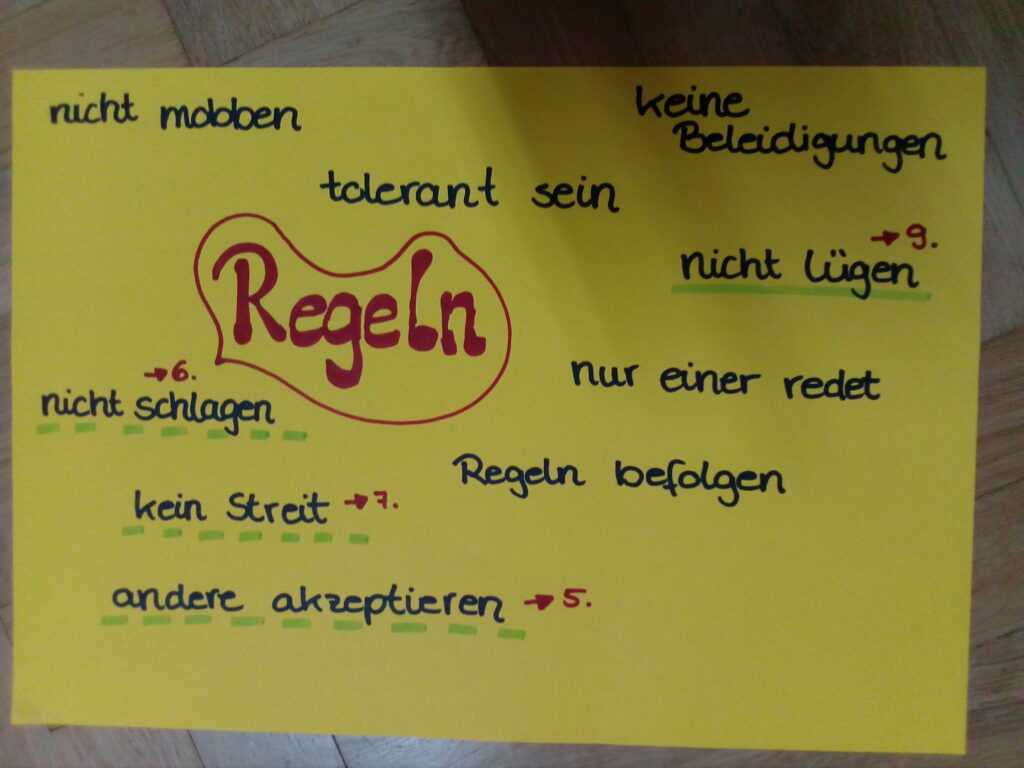 nicht mobben
keine
Beleidigungen
tolerant sein
→ 9.
nicht lügen
Regeln
→ 6.
nicht schlagen
nur einer redet
Regeln befolgen
kein Streit → 7.
andere akzeptieren → 5.